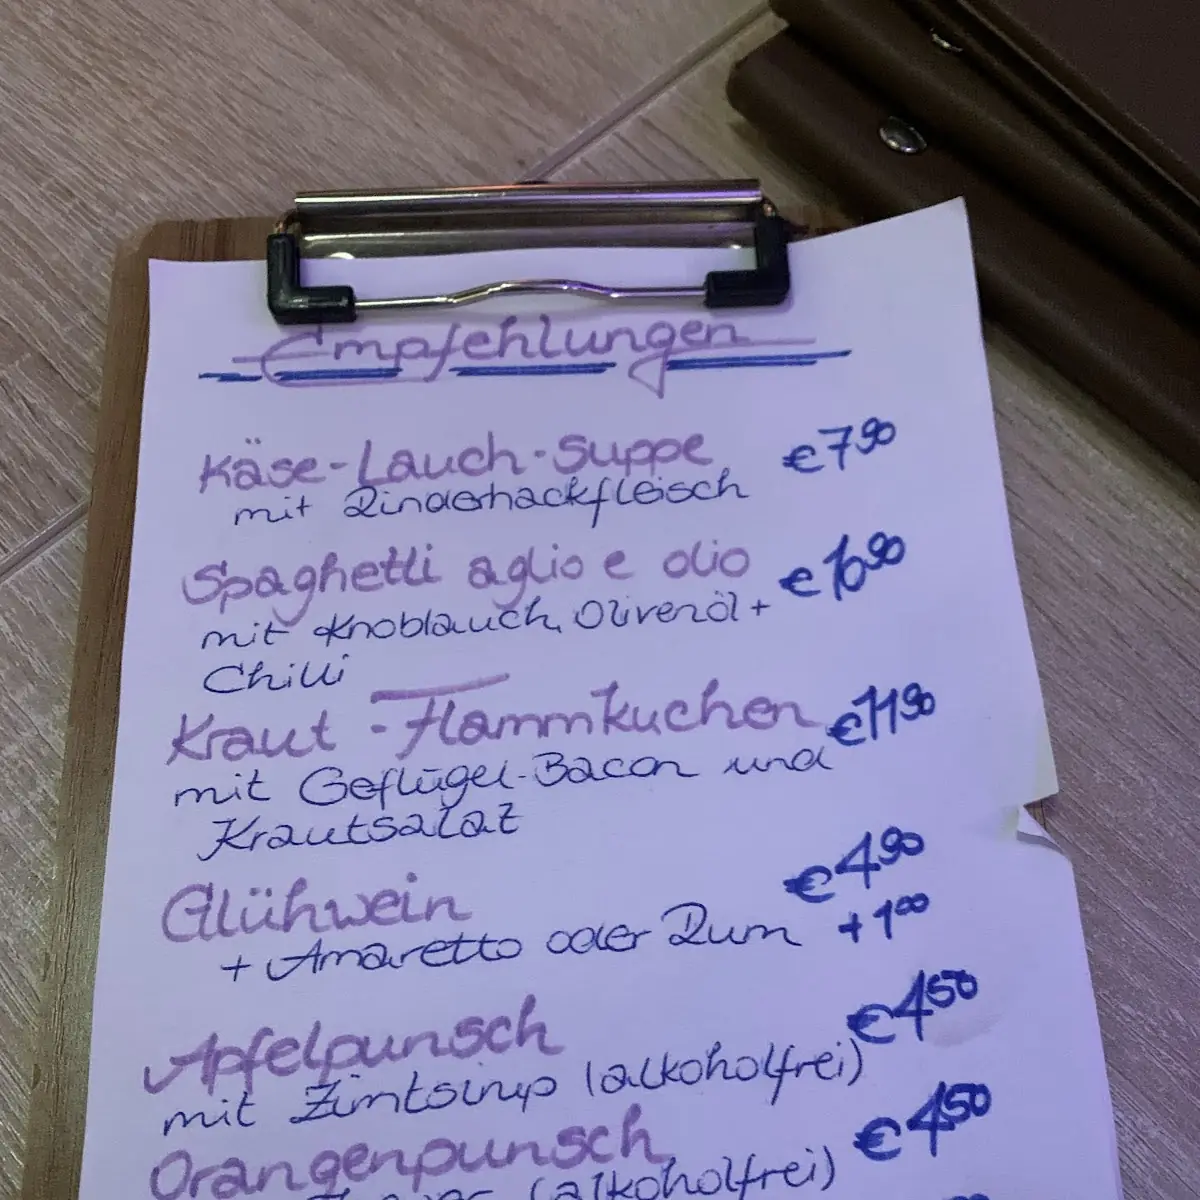 Empfehlungen
Käse-Lauch-Suppe €7,90
mit Rinderhackfleisch
Spaghetti aglio e olio €10,90
mit Knoblauch, Olivenöl +
Chilli
Kraut-Flammkuchen €11,90
mit Geflügel-Bacon und
Krautsalat
Glühwein €4,90
+ Amaretto oder Rum +1,00
Apfelpunsch €4,50
mit Zimtsirup (alkoholfrei)
Orangenpunsch €4,50
(alkoholfrei)